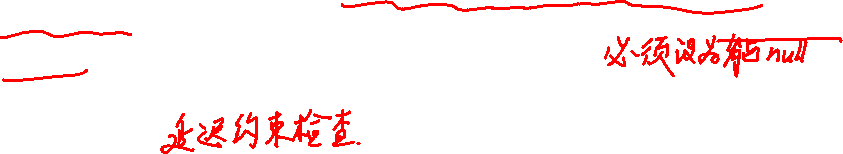 必须设为能null
延迟约束检查.